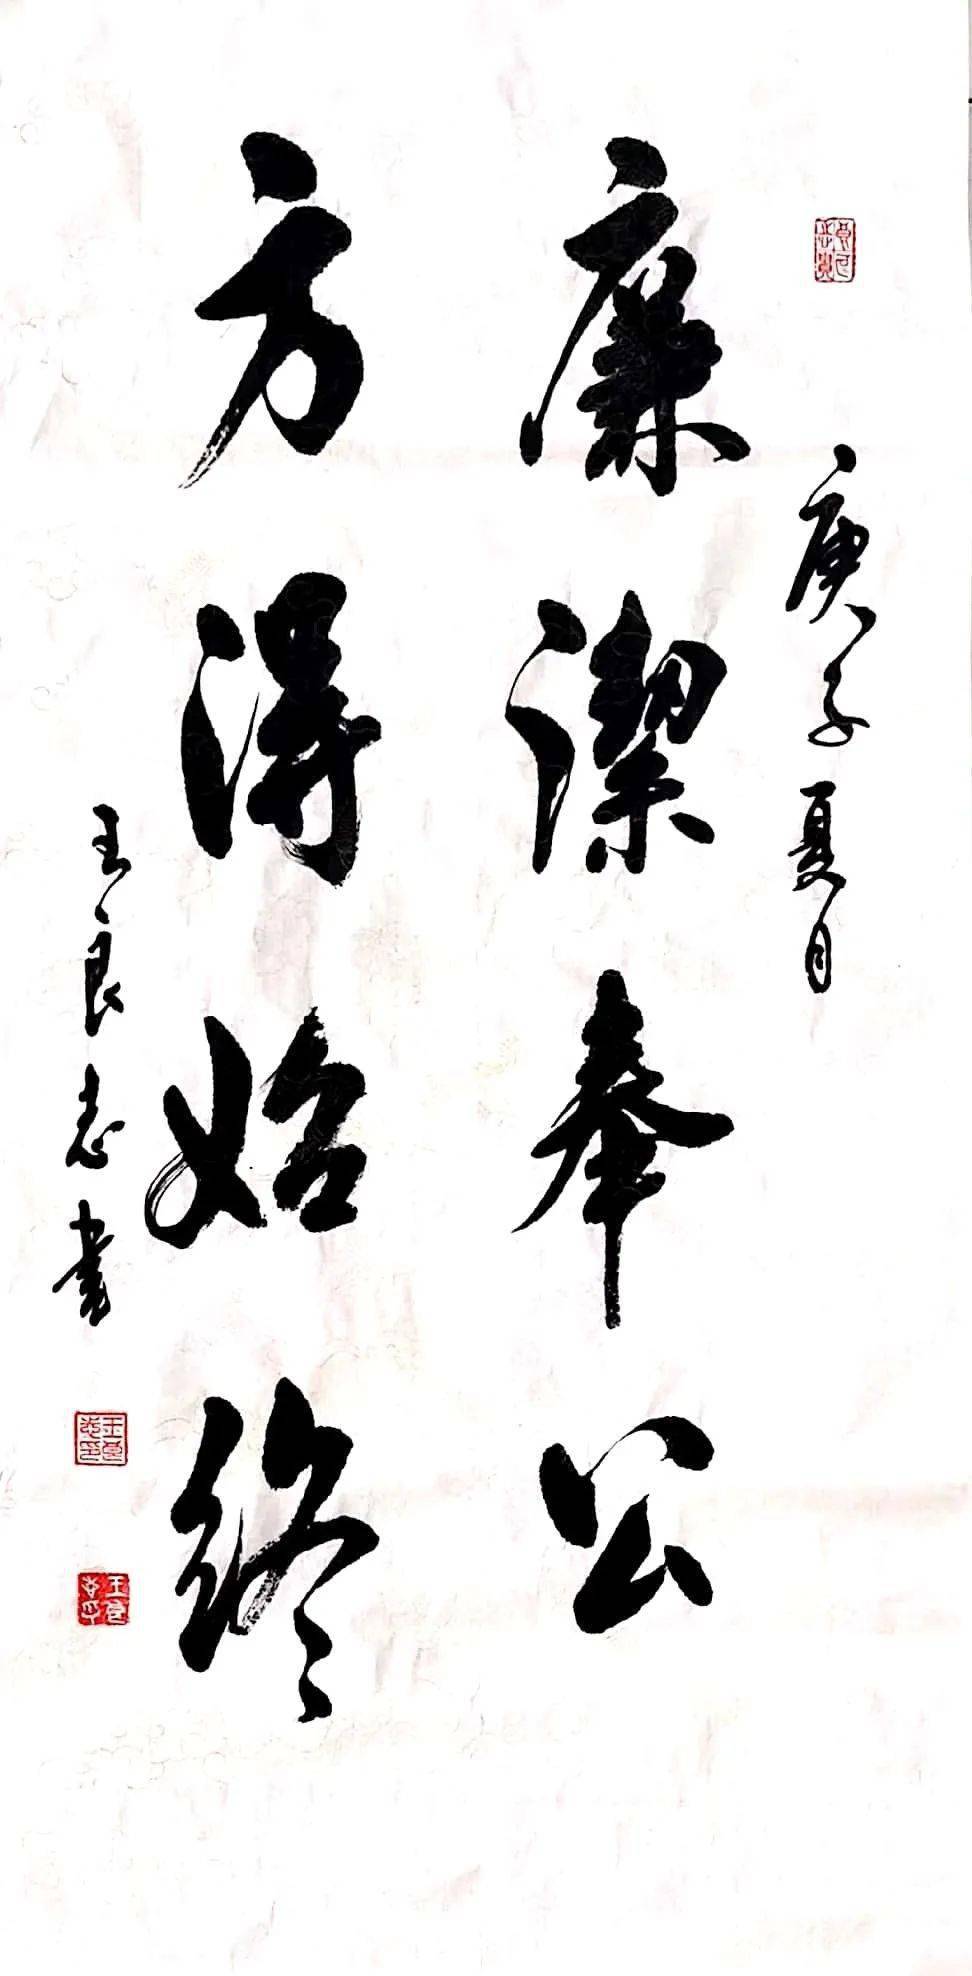 庚子夏月
廉潔奉公
方得始終
王良志書